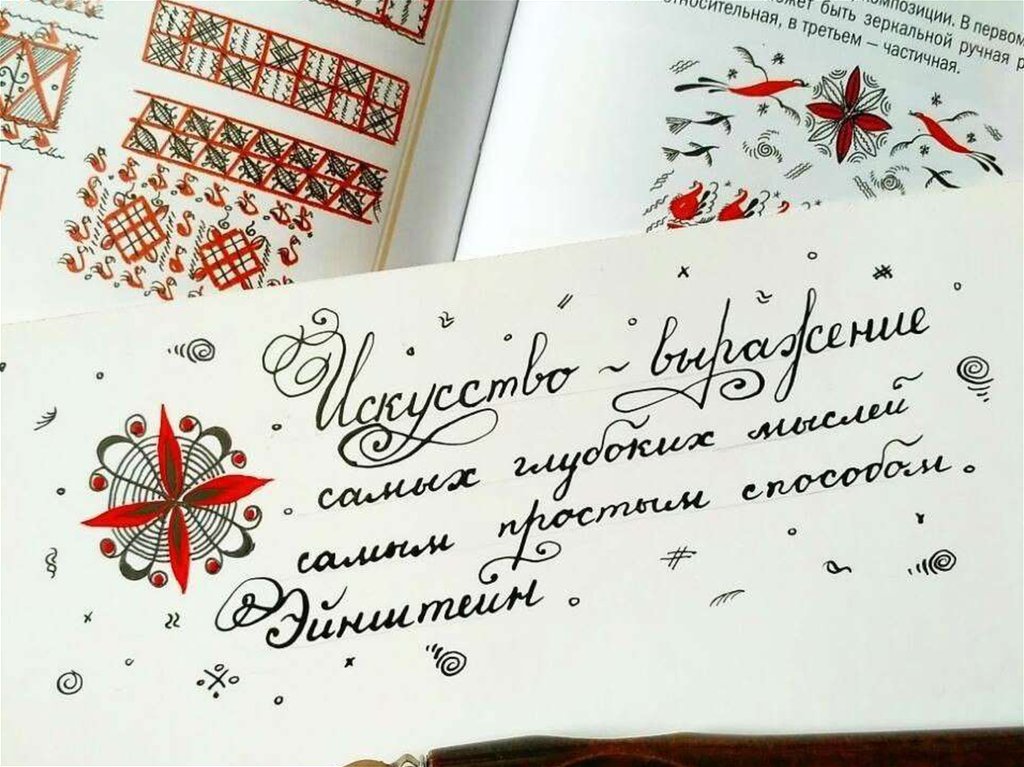 композиции. В первом
может быть зеркальной ручная
относительная, в третьем – частичная.
Искусство ~ выражение
самых глубоких мыслей
самым простым способом.
Эйнштейн.